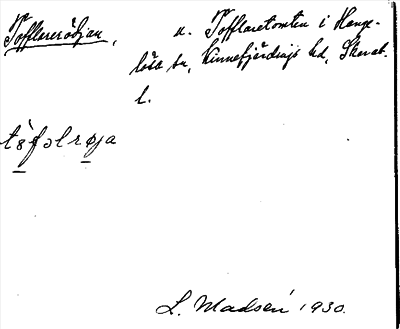 Tofflareröjan, u. Tofflaretomten i Hange-
lösa sn, Kinnefjärdings hd, Skarab.
l.
tòfolrøja
L. Madsén 1930.